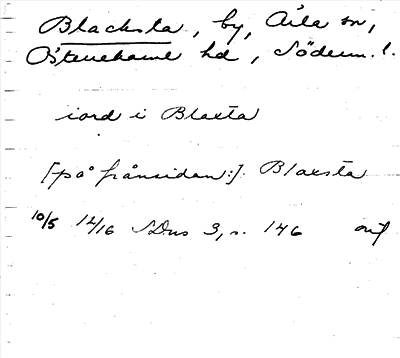 Blacksta, by, Årla sn,
Österrekarne hd, Söderm. l.
iord i Blaxta
[på frånsidan:] Blaesta
10/5 14/16 SDns 3, s. 146